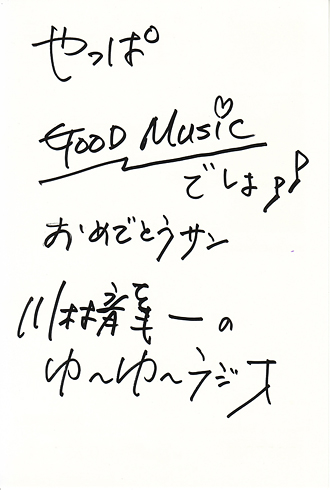 やっぱ
GOOD Music
でしょ♪♪
おめでとうサン
川村龍一の
ゆ〜ゆ〜ラジオ